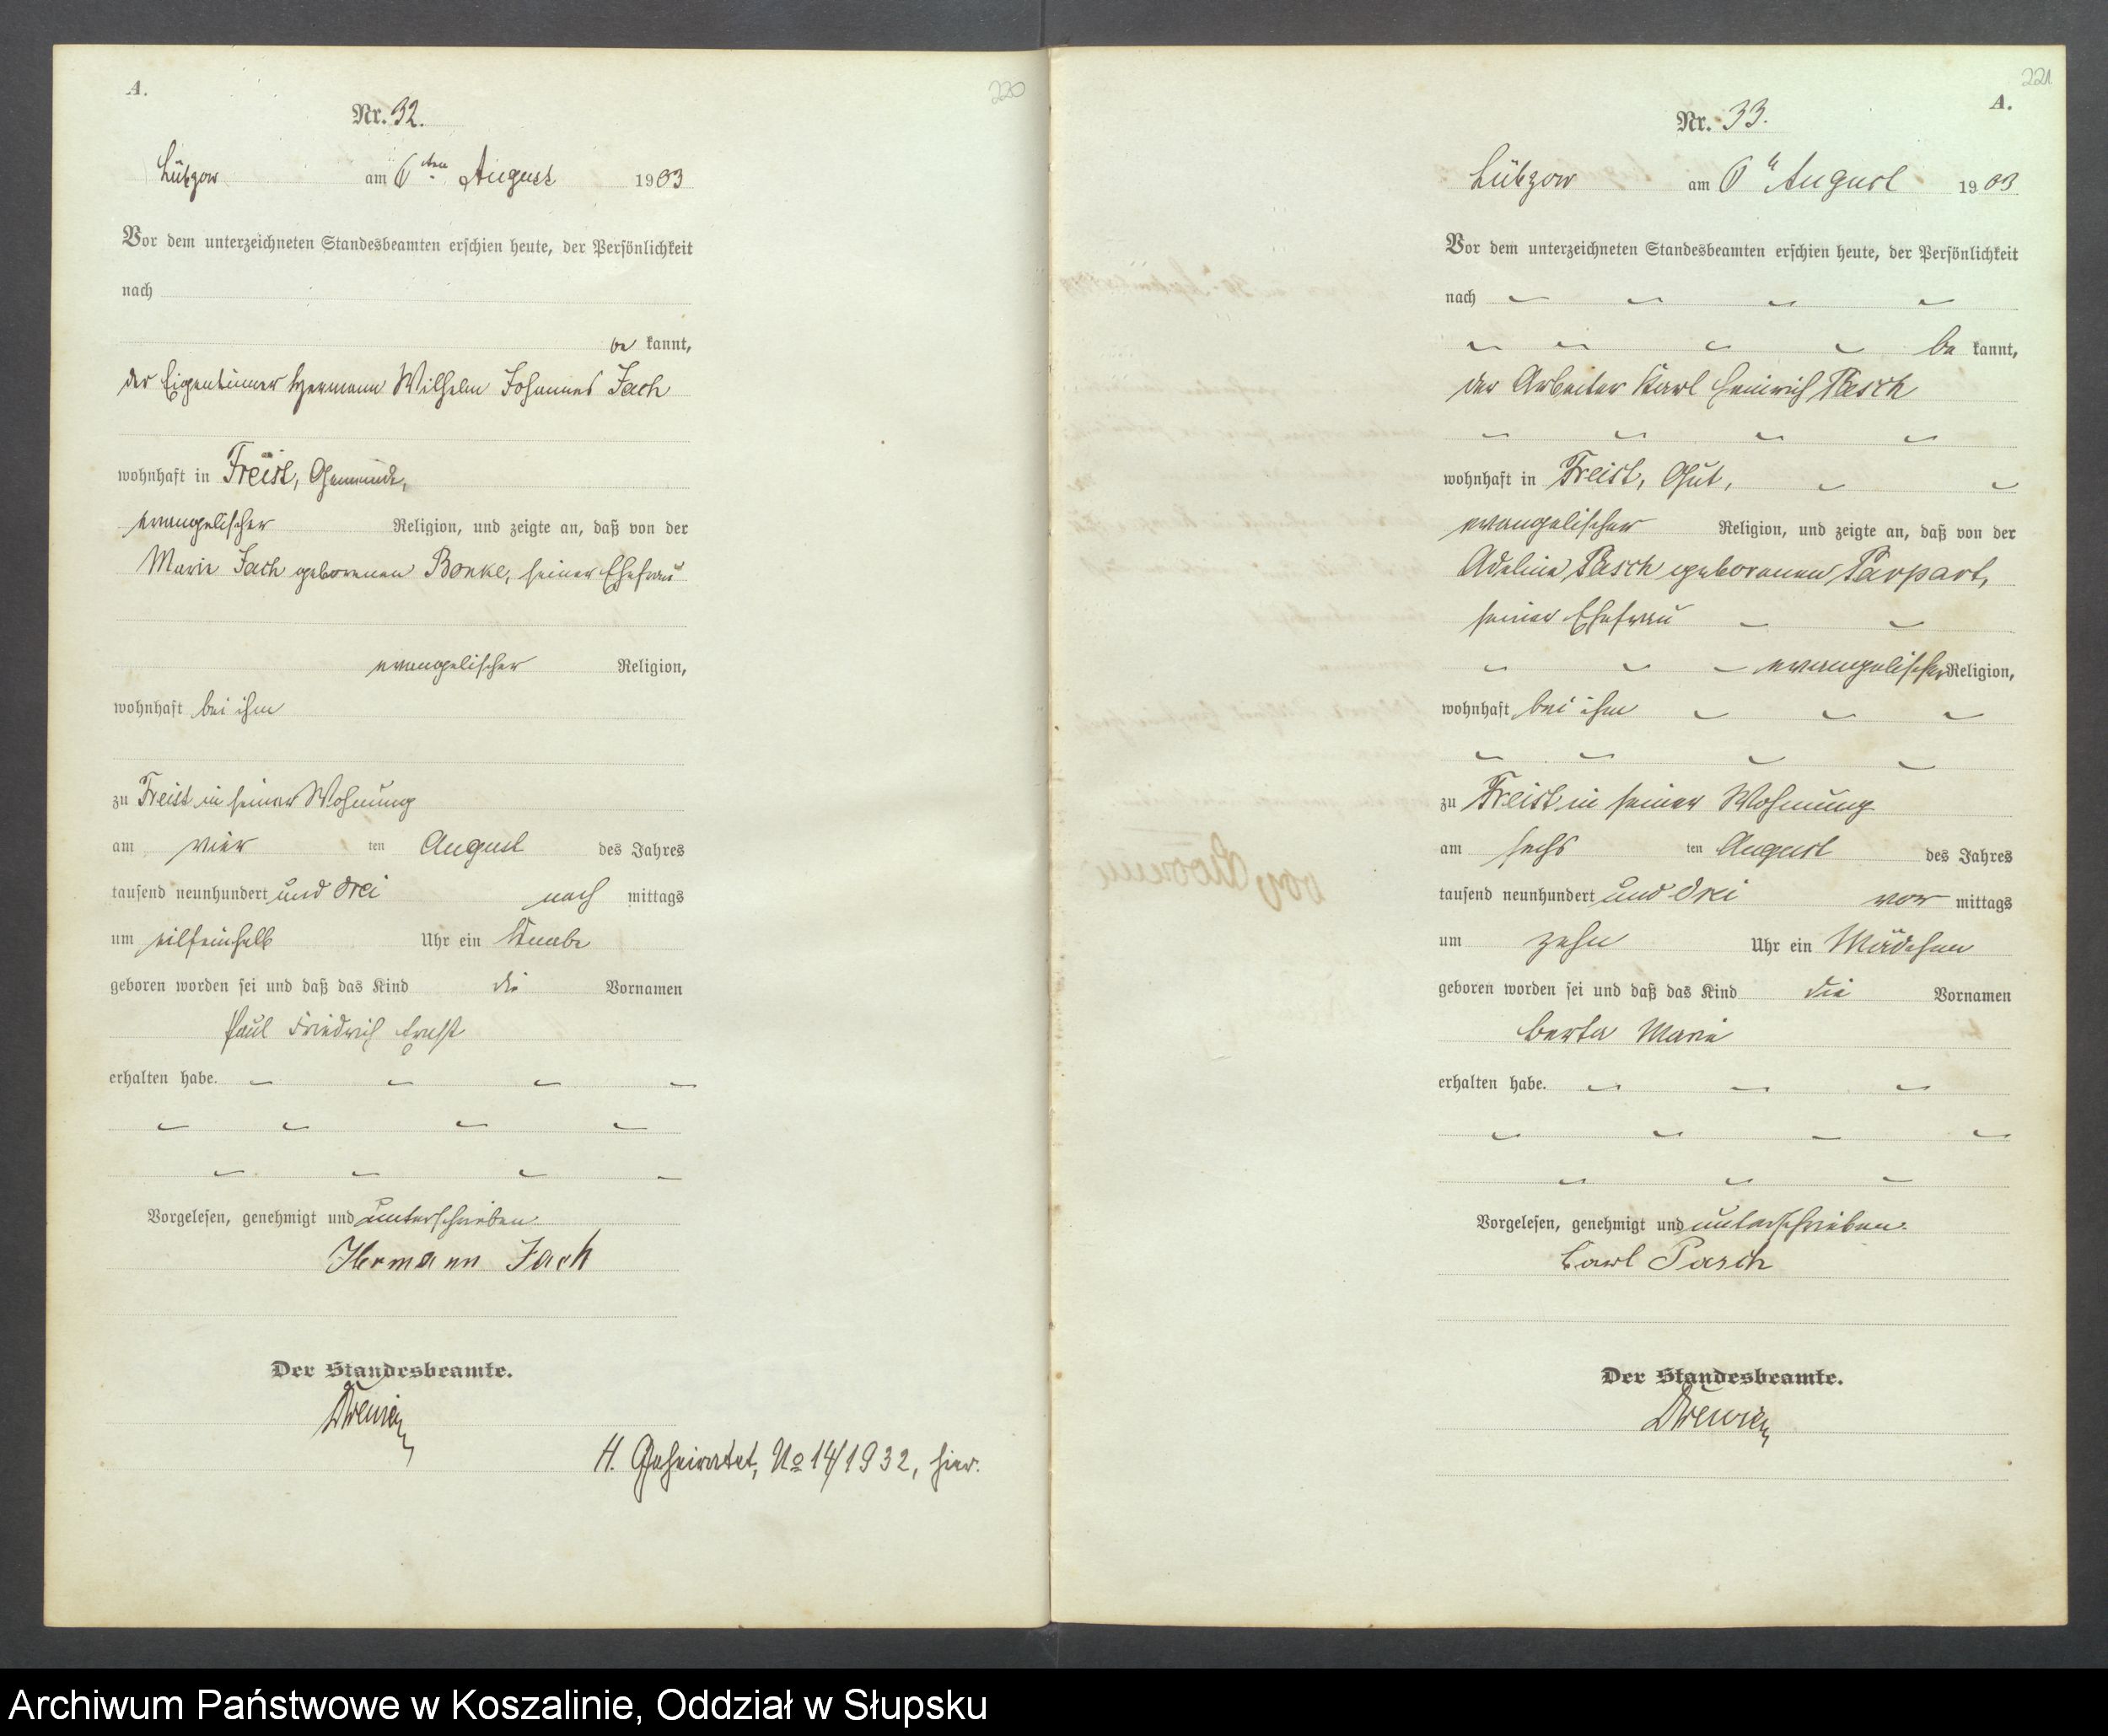 A.
220
Nr. 32.
Lübzow am 6ten August 1903
Vor dem unterzeichneten Standesbeamten erschien heute, der Persönlichkeit
nach
be kannt,
der Eigentümer Hermann Wilhelm Johannes Jach
wohnhaft in Freist, Gemeinde,
evangelischer Religion, und zeigte an, daß von der
Marie Jach geborenen Bonke, seiner Ehefrau
evangelischer Religion,
wohnhaft bei ihm
zu Freist in seiner Wohnung
am vier ten August des Jahres
tausend neunhundert und drei nach mittags
um eilfeinhalb Uhr ein Knabe
geboren worden sei und daß das Kind die Vornamen
Paul Friedrich Ernst
erhalten habe.
Vorgelesen, genehmigt und unterschrieben.
Hermann Jach
Der Standesbeamte.
H. Geheiratet, No 14/1932, hier.
221
A.
Nr. 33.
Lübzow am 6ten August 1903
Vor dem unterzeichneten Standesbeamten erschien heute, der Persönlichkeit
nach
be kannt,
der Arbeiter Karl Heinrich Pasch
wohnhaft in Freist, Gut,
evangelischer Religion, und zeigte an, daß von der
Adeline Pasch geborenen Parpart,
seiner Ehefrau
evangelischer Religion,
wohnhaft bei ihm
zu Freist in seiner Wohnung
am sechs ten August des Jahres
tausend neunhundert und drei vor mittags
um zehn Uhr ein Mädchen
geboren worden sei und daß das Kind die Vornamen
Berta Marie
erhalten habe.
Vorgelesen, genehmigt und unterschrieben.
Carl Pasch
Der Standesbeamte.
Archiwum Państwowe w Koszalinie, Oddział w Słupsku